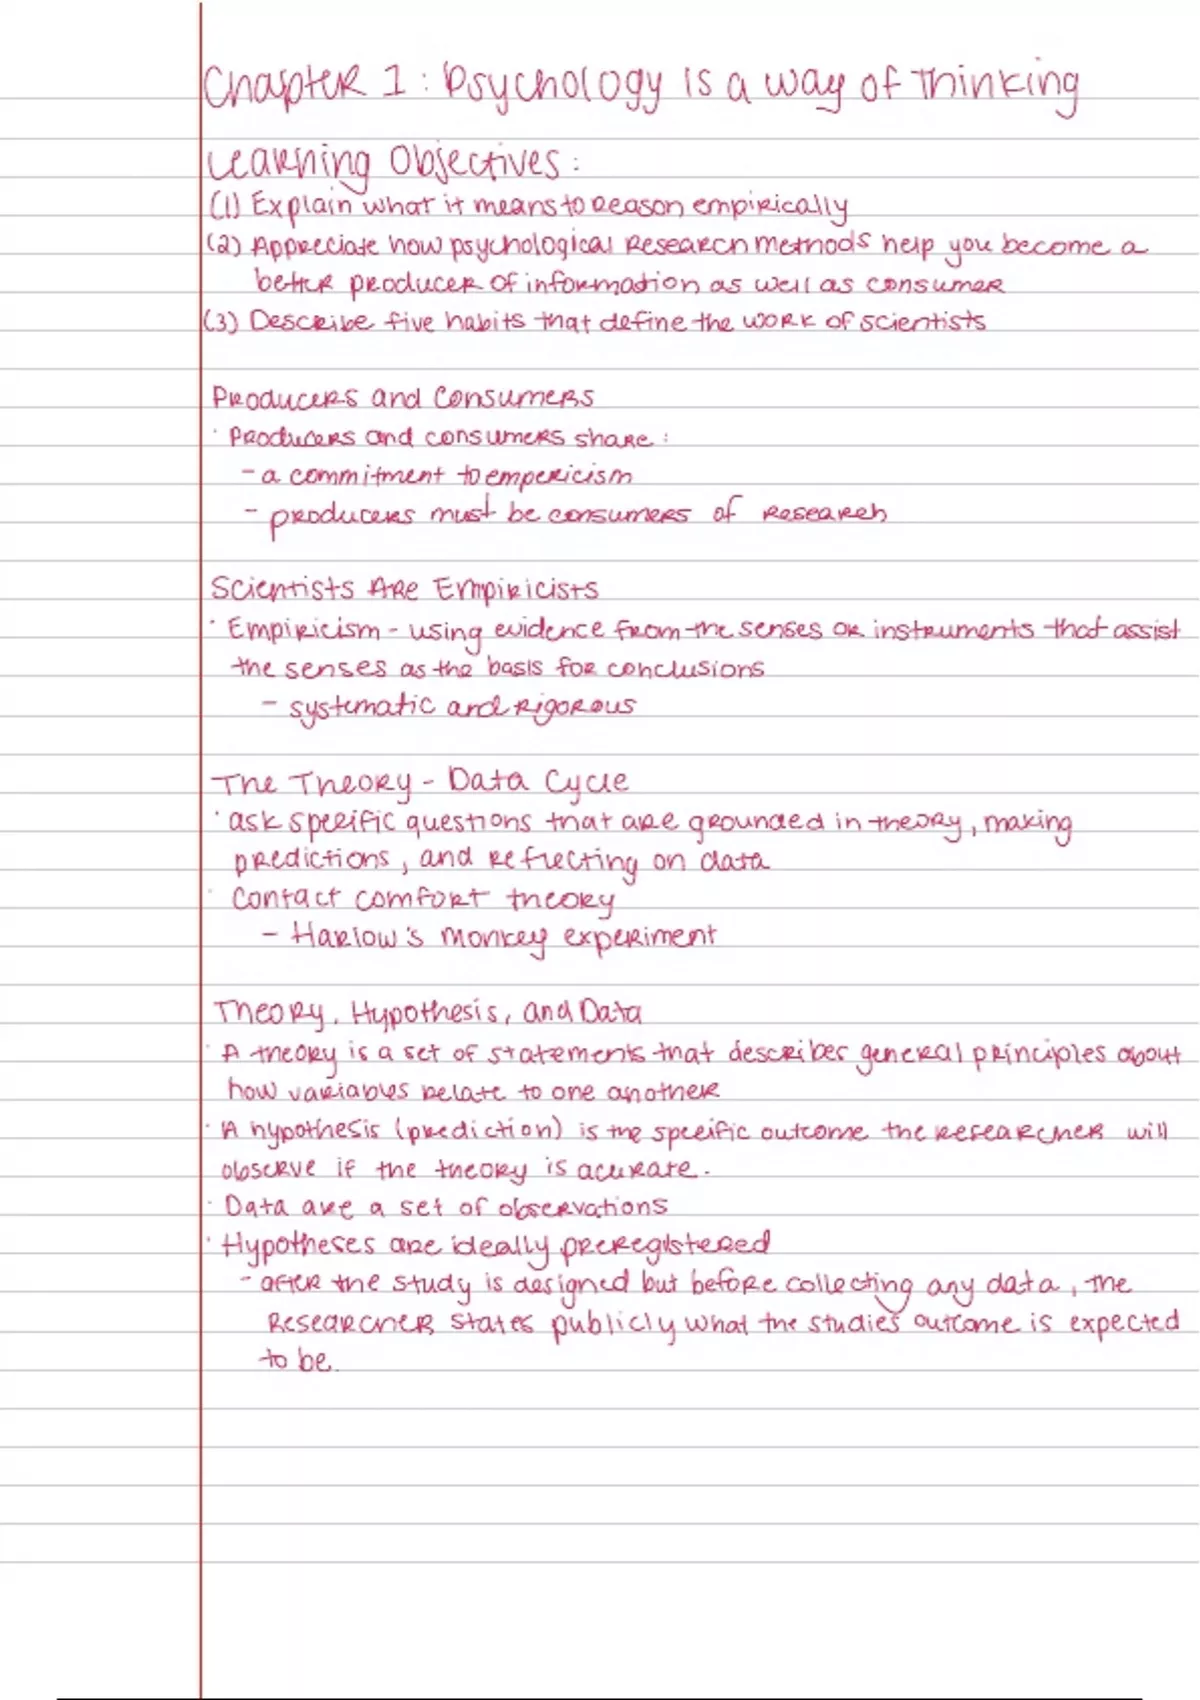 Chapter 1: Psychology is a way of thinking
Learning Objectives:
(1) Explain what it means to reason empirically
(2) Appreciate how psychological research methods help you become a
better producer of information as well as consumer
(3) Describe five habits that define the work of scientists
Producers and Consumers
· Producers and consumers share:
- a commitment to empericism
- producers must be consumers of research
Scientists Are Empiricists
· Empiricism - using evidence from the senses or instruments that assist
the senses as the basis for conclusions
- systematic and rigorous
The Theory - Data Cycle
· ask specific questions that are grounded in theory, making
predictions, and reflecting on data
· Contact comfort theory
- Harlow's monkey experiment
Theory, Hypothesis, and Data
· A theory is a set of statements that describes general principles about
how variables relate to one another
· A hypothesis (prediction) is the specific outcome the researcher will
observe if the theory is acurate.
· Data are a set of observations
· Hypotheses are ideally preregistered
- after the study is designed but before collecting any data, the
researcher states publicly what the studies' outcome is expected
to be.